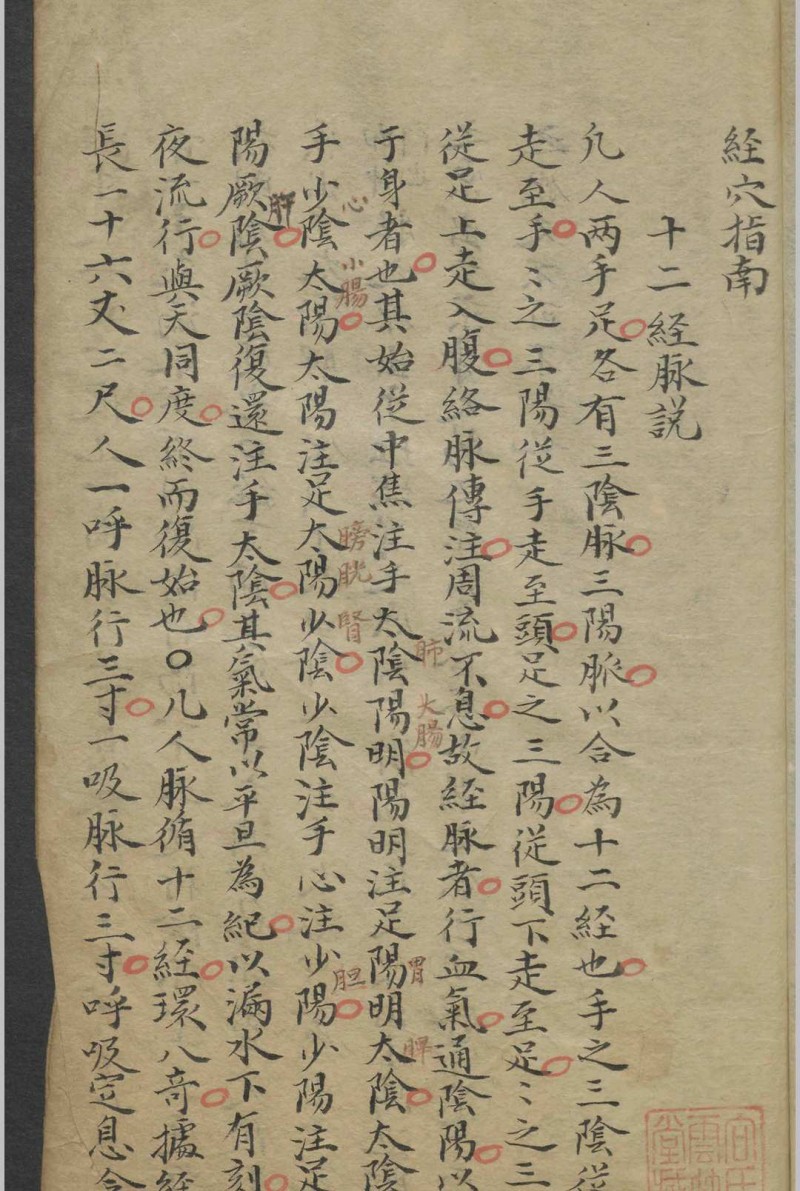 経穴指南
十二経脉説
凢人两手足各有三陰脉三陽脈以合為十二経也手之三陰従
走至手〻之三陽従手走至頭足之三陽従頭下走至足〻之三
従足上走入腹絡脉傳注周流不息故経脉者行血氣通陰陽以
于身者也其始従中焦注手太陰陽明陽明注足陽明太陰太陰
肺
大腸
胃
脾
手少陰太陽太陽注足太陽少陰少陰注手心注少陽少陽注足
心
小腸
膀胱
腎
胆
陽厥陰厥陰復還注手太陰其氣常以平旦為紀以漏水下有刻
肝
夜流行與天同度終而復始也〇凢人脉循十二経環八竒據経
長一十六丈二尺人一呼脉行三寸一吸脉行三寸呼吸定息合